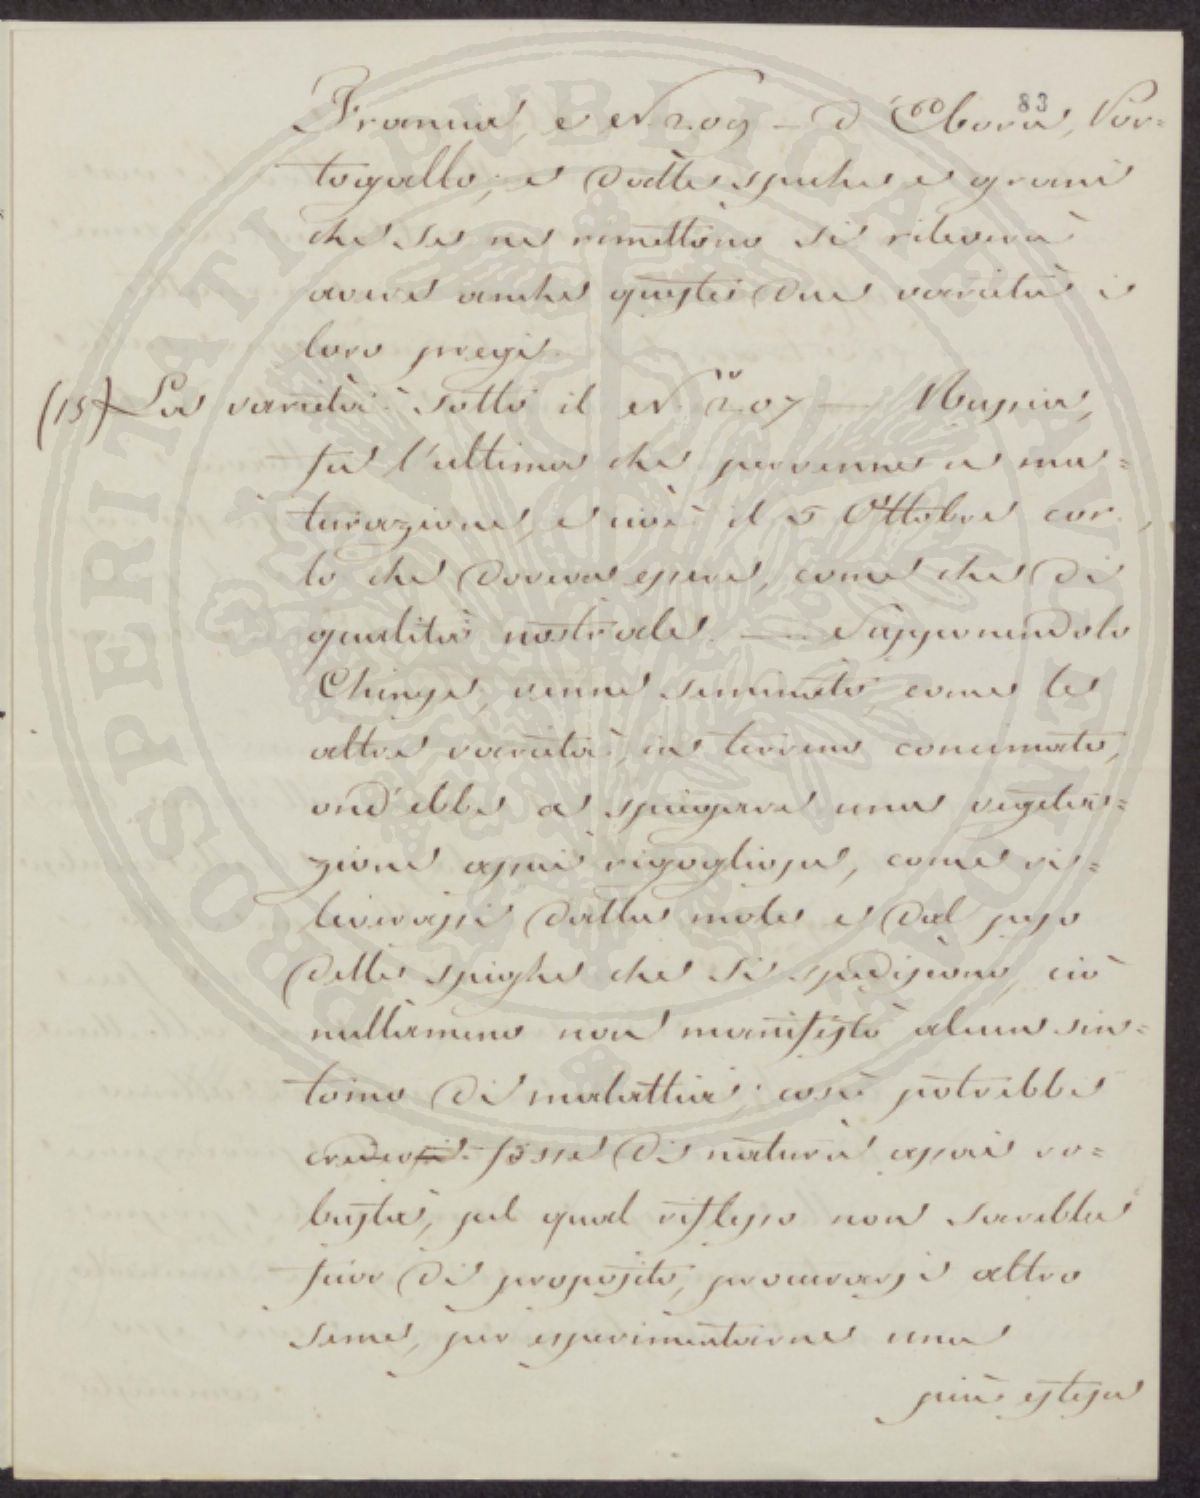 83
Francia, e N. 209 – d'Ebora, Por=
togallo; e dalle spiche e grani
che se ne rimettono si rileverà
avere anche queste due varietà i
loro pregi.
(15) La varietà sotto il N. 207 — Russia,
fu l'ultima che pervenne a ma=
turazione, e cioè il 5 Ottobre cor.,
lo che doveva essere, come che di
qualità nostrale. — Supponendolo
Chinese, venne seminato, come le
altre varietà, in terreno concimato,
ond'ebbe a spiegare una vegeta=
zione assai rigogliosa, come ri=
leverassi dalla mole e dal peso
delle spighe che si spediscono, ciò
nullameno non manifestò alcun sin=
tomo di malattia; così potrebbe
credersi fosse di natura assai ro=
busta, sul qual riflesso non sarebbe
fuor di proposito, procurarsi altro
seme, per esperimentarne una
più estesa
PROSPERITATI PUBLICAE AUGENDAE